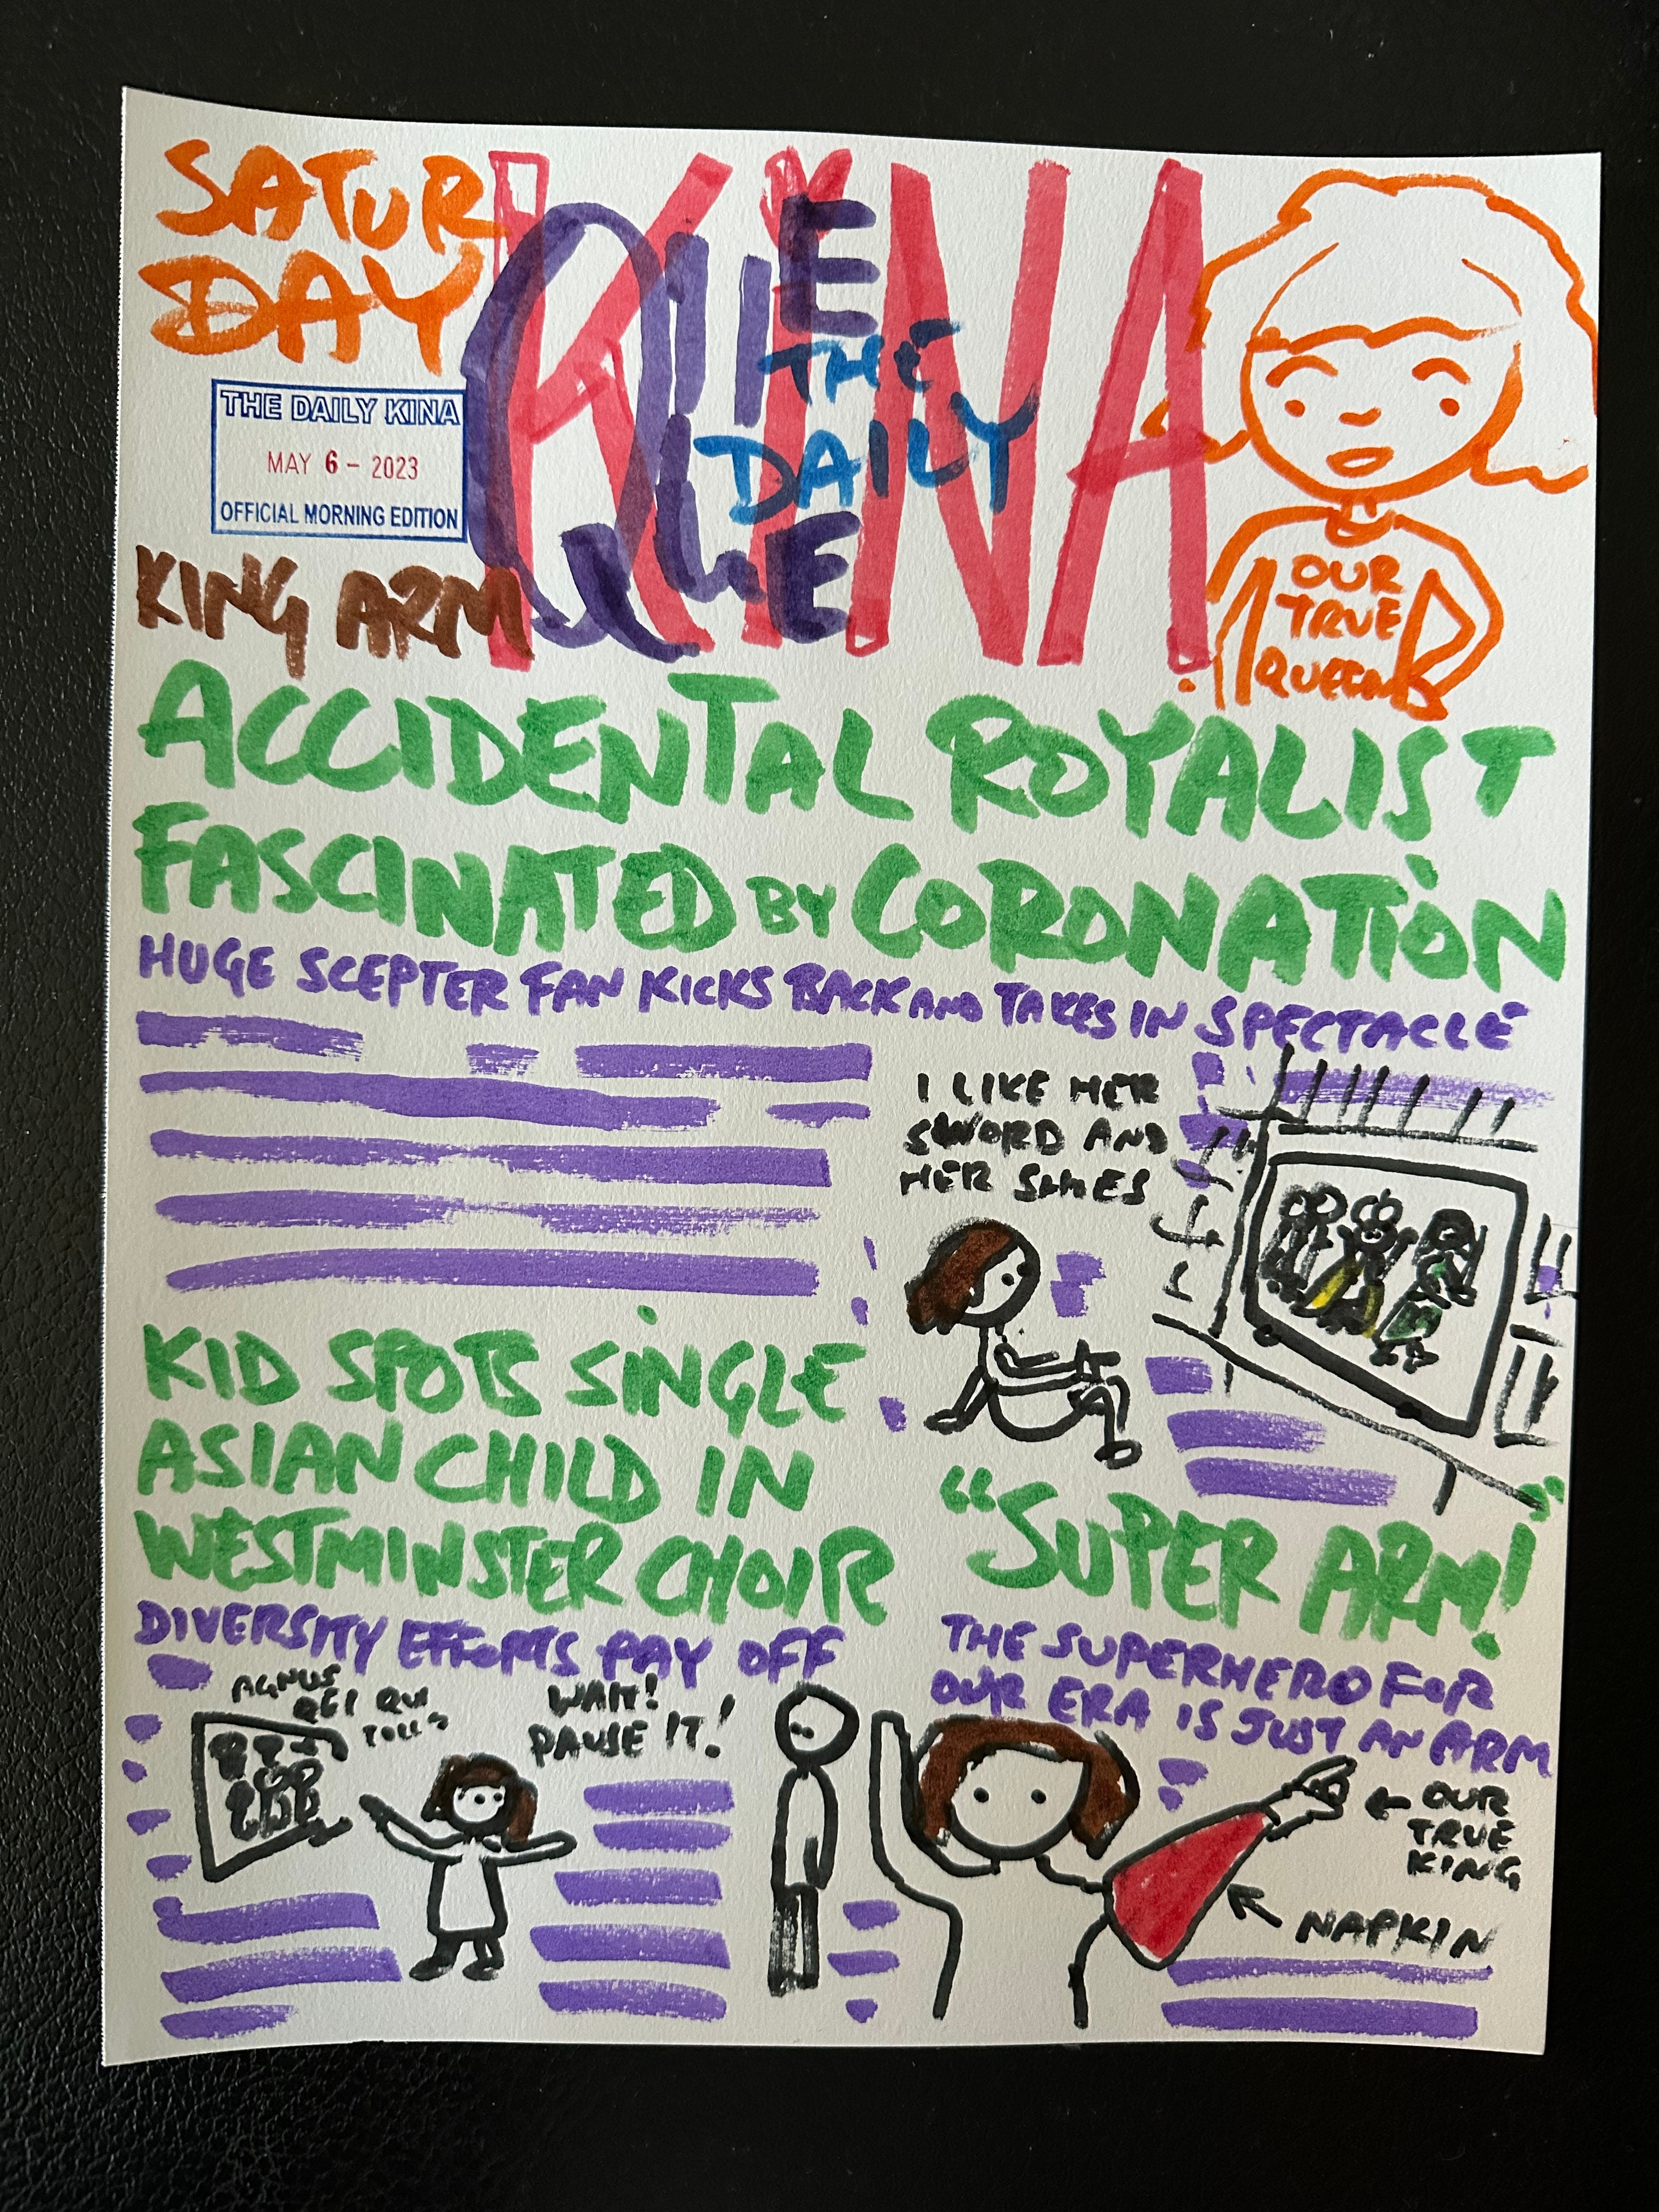 SATUR
DAY
KINA
THE
DAILY
THE DAILY KINA
MAY 6 - 2023
OFFICIAL MORNING EDITION
KING ARM
OUR
TRUE
QUEEN
ACCIDENTAL ROYALIST
FASCINATED BY CORONATION
HUGE SCEPTER FAN KICKS BACK AND TAKES IN SPECTACLE
I LIKE HER
SWORD AND
HER SHOES
KID SPOTS SINGLE
ASIAN CHILD IN
WESTMINSTER CHOIR
DIVERSITY EFFORTS PAY OFF
AGNUS
DEI QUI
TOLLS
WAIT!
PAUSE IT!
"SUPER ARM!"
THE SUPERHERO FOR
OUR ERA IS JUST AN ARM
← OUR
TRUE
KING
NAPKIN